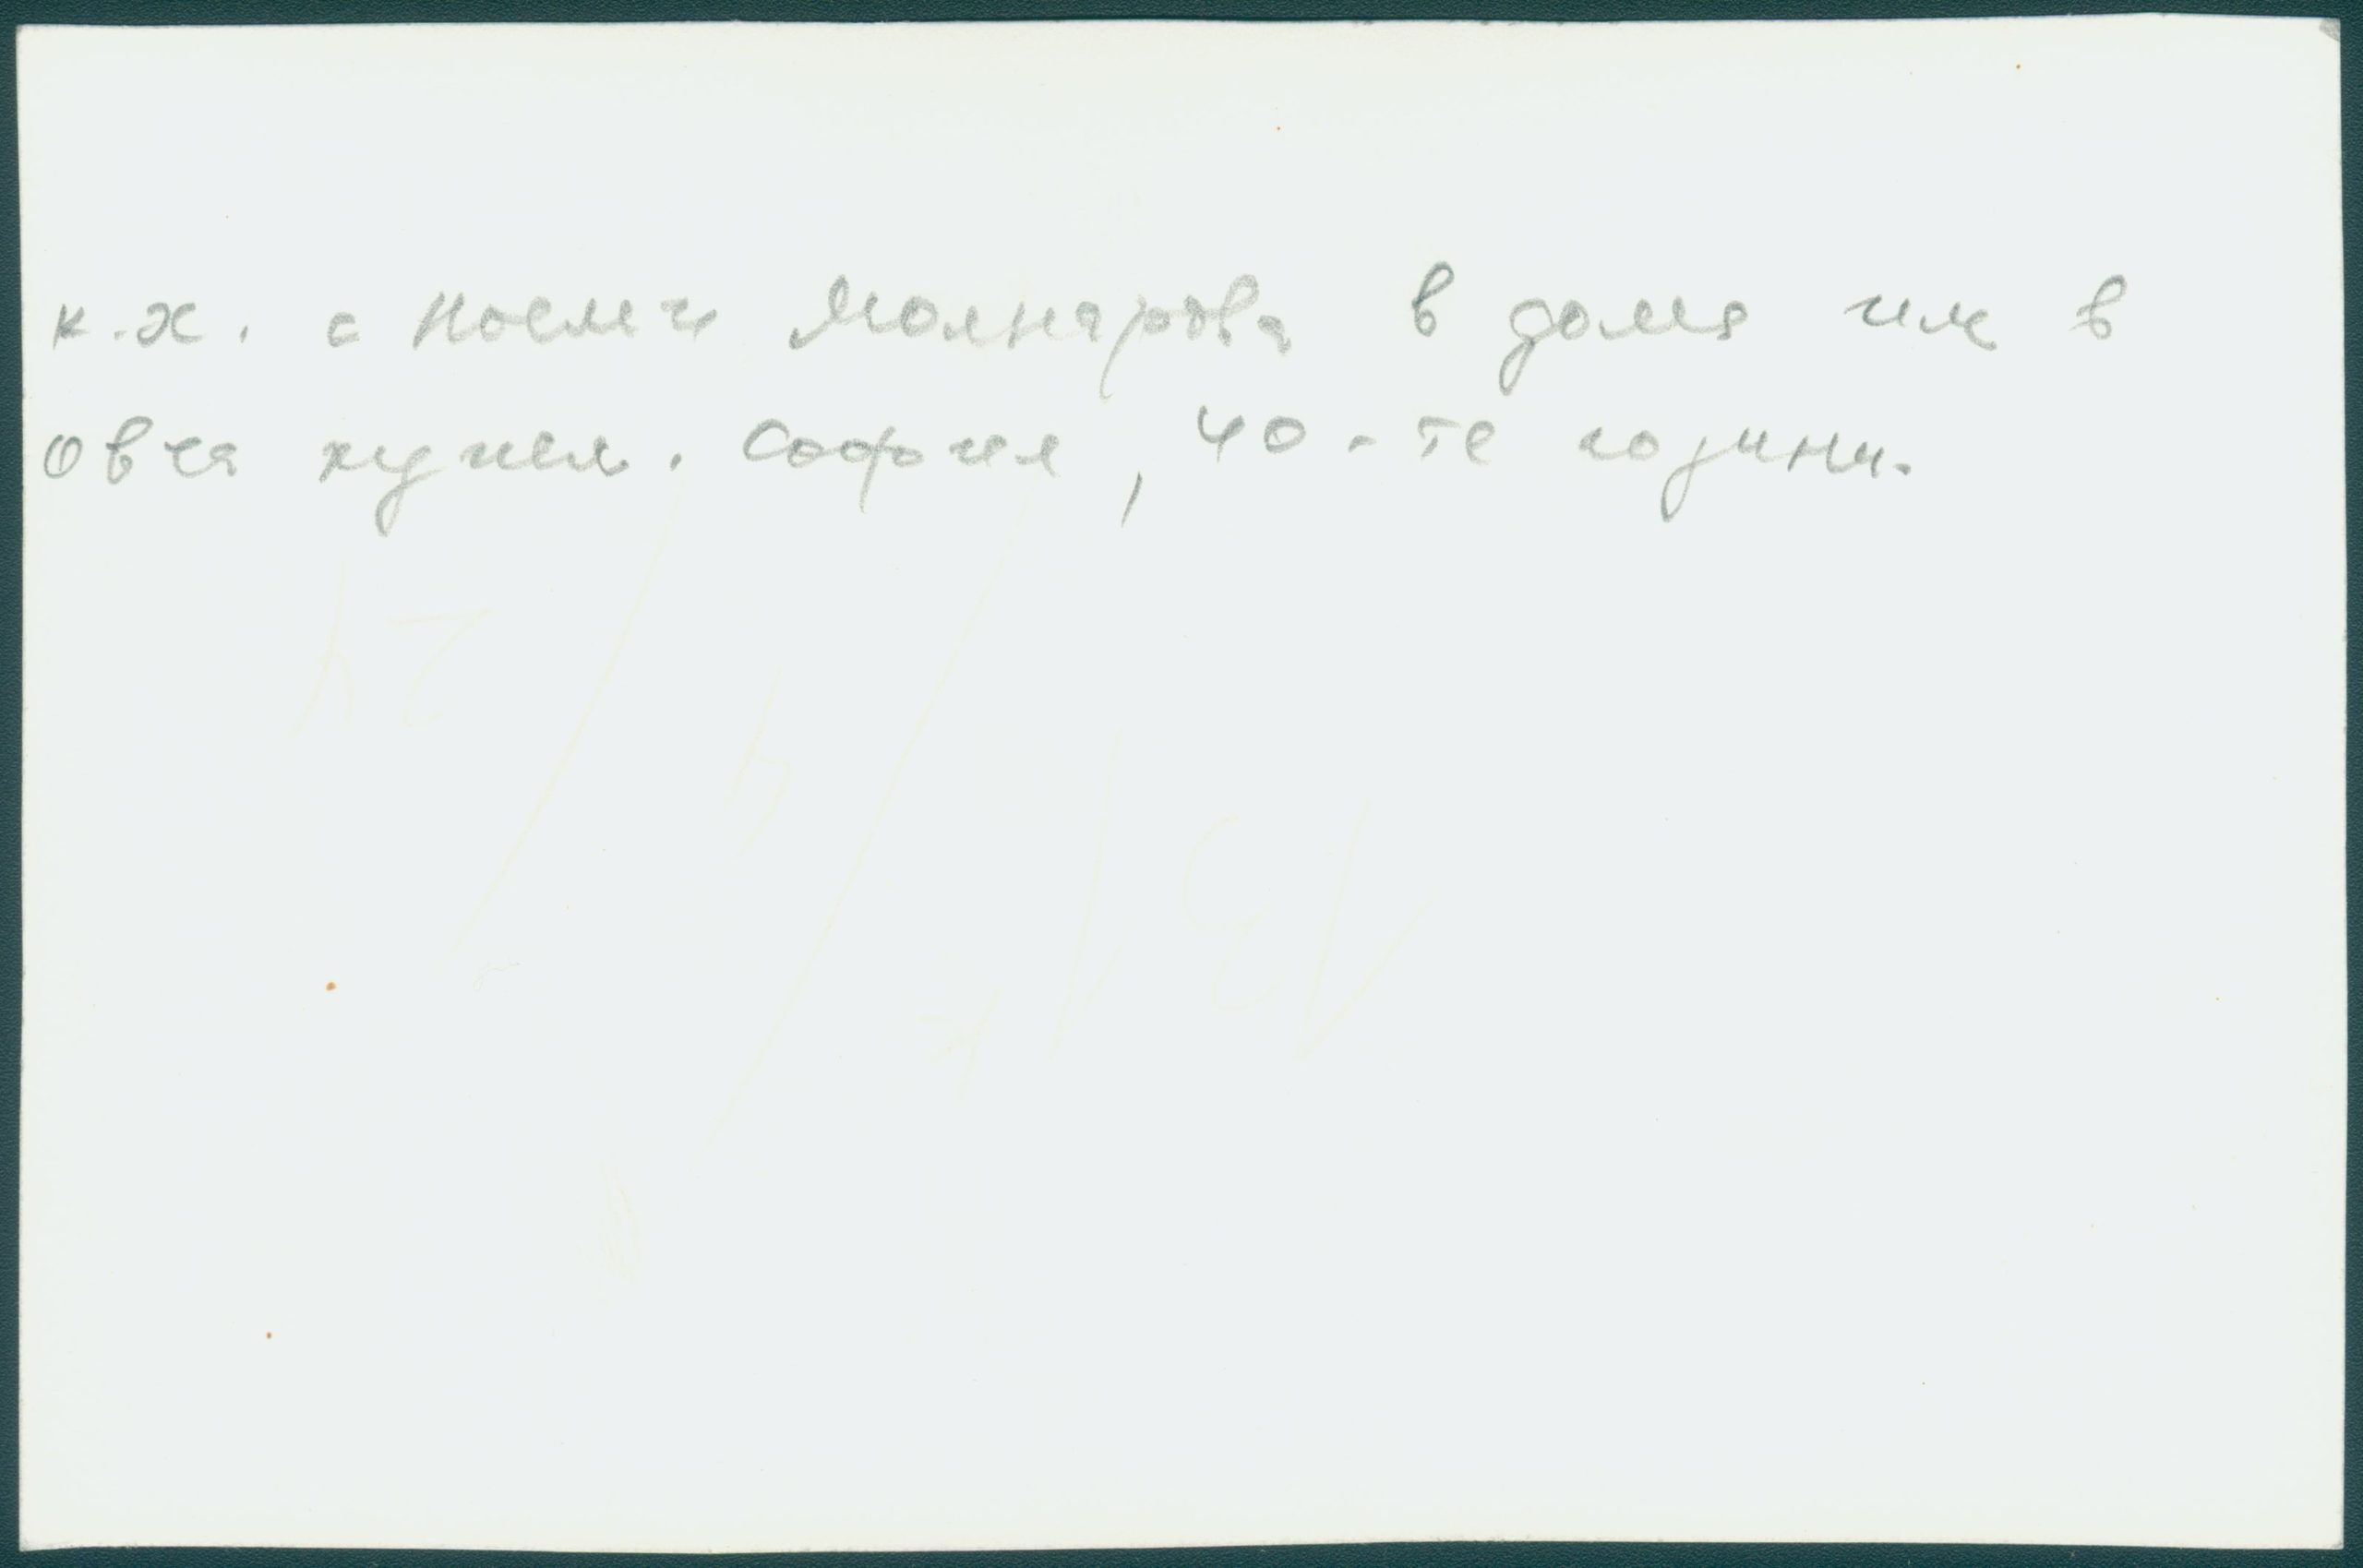 К.Х. с Ноеми Молнарова в дома им в
Овча купел. София, 40-те години.